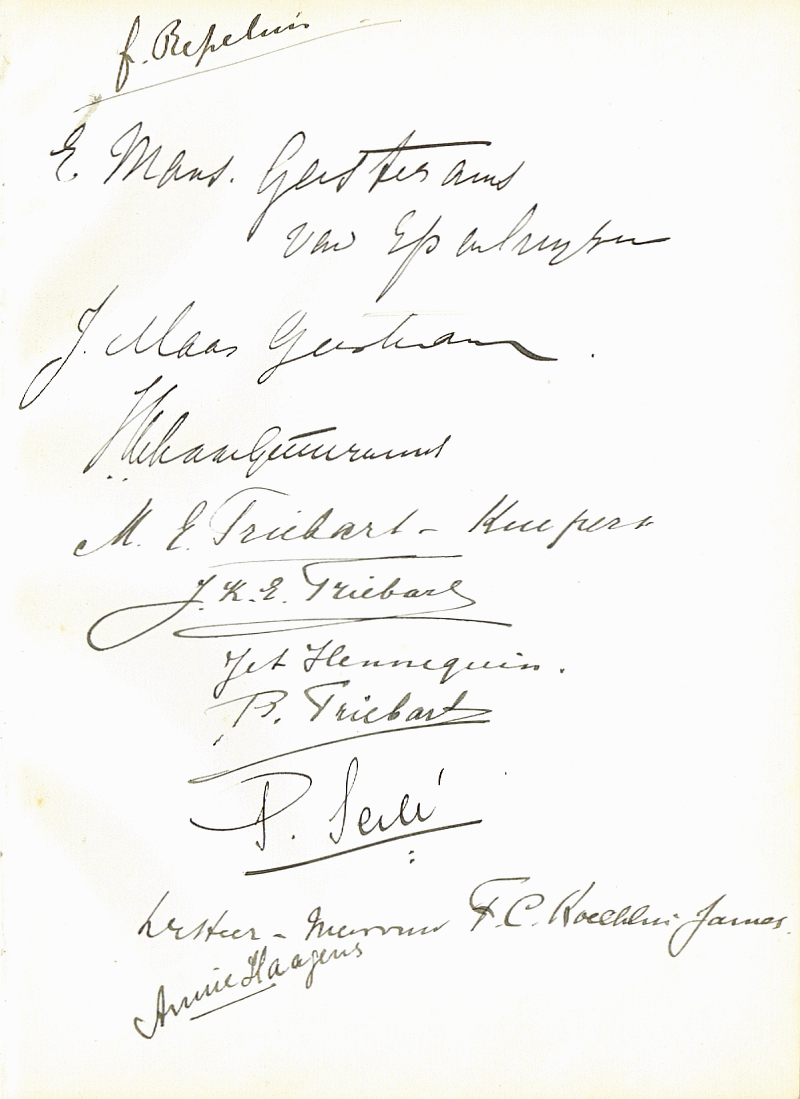 f. Repelius
E Maas. Geesteranus
van Espenhuyzen
J. Maas Geesteranus
HMaasGeesteranus
M. E. Triebart - Kuepers
J. K. E. Triebart
Jet Hennequin.
B. Triebart
P. Serlé
De Heer - Mevrouw F. C. Koechlin James.
Annie Haagens